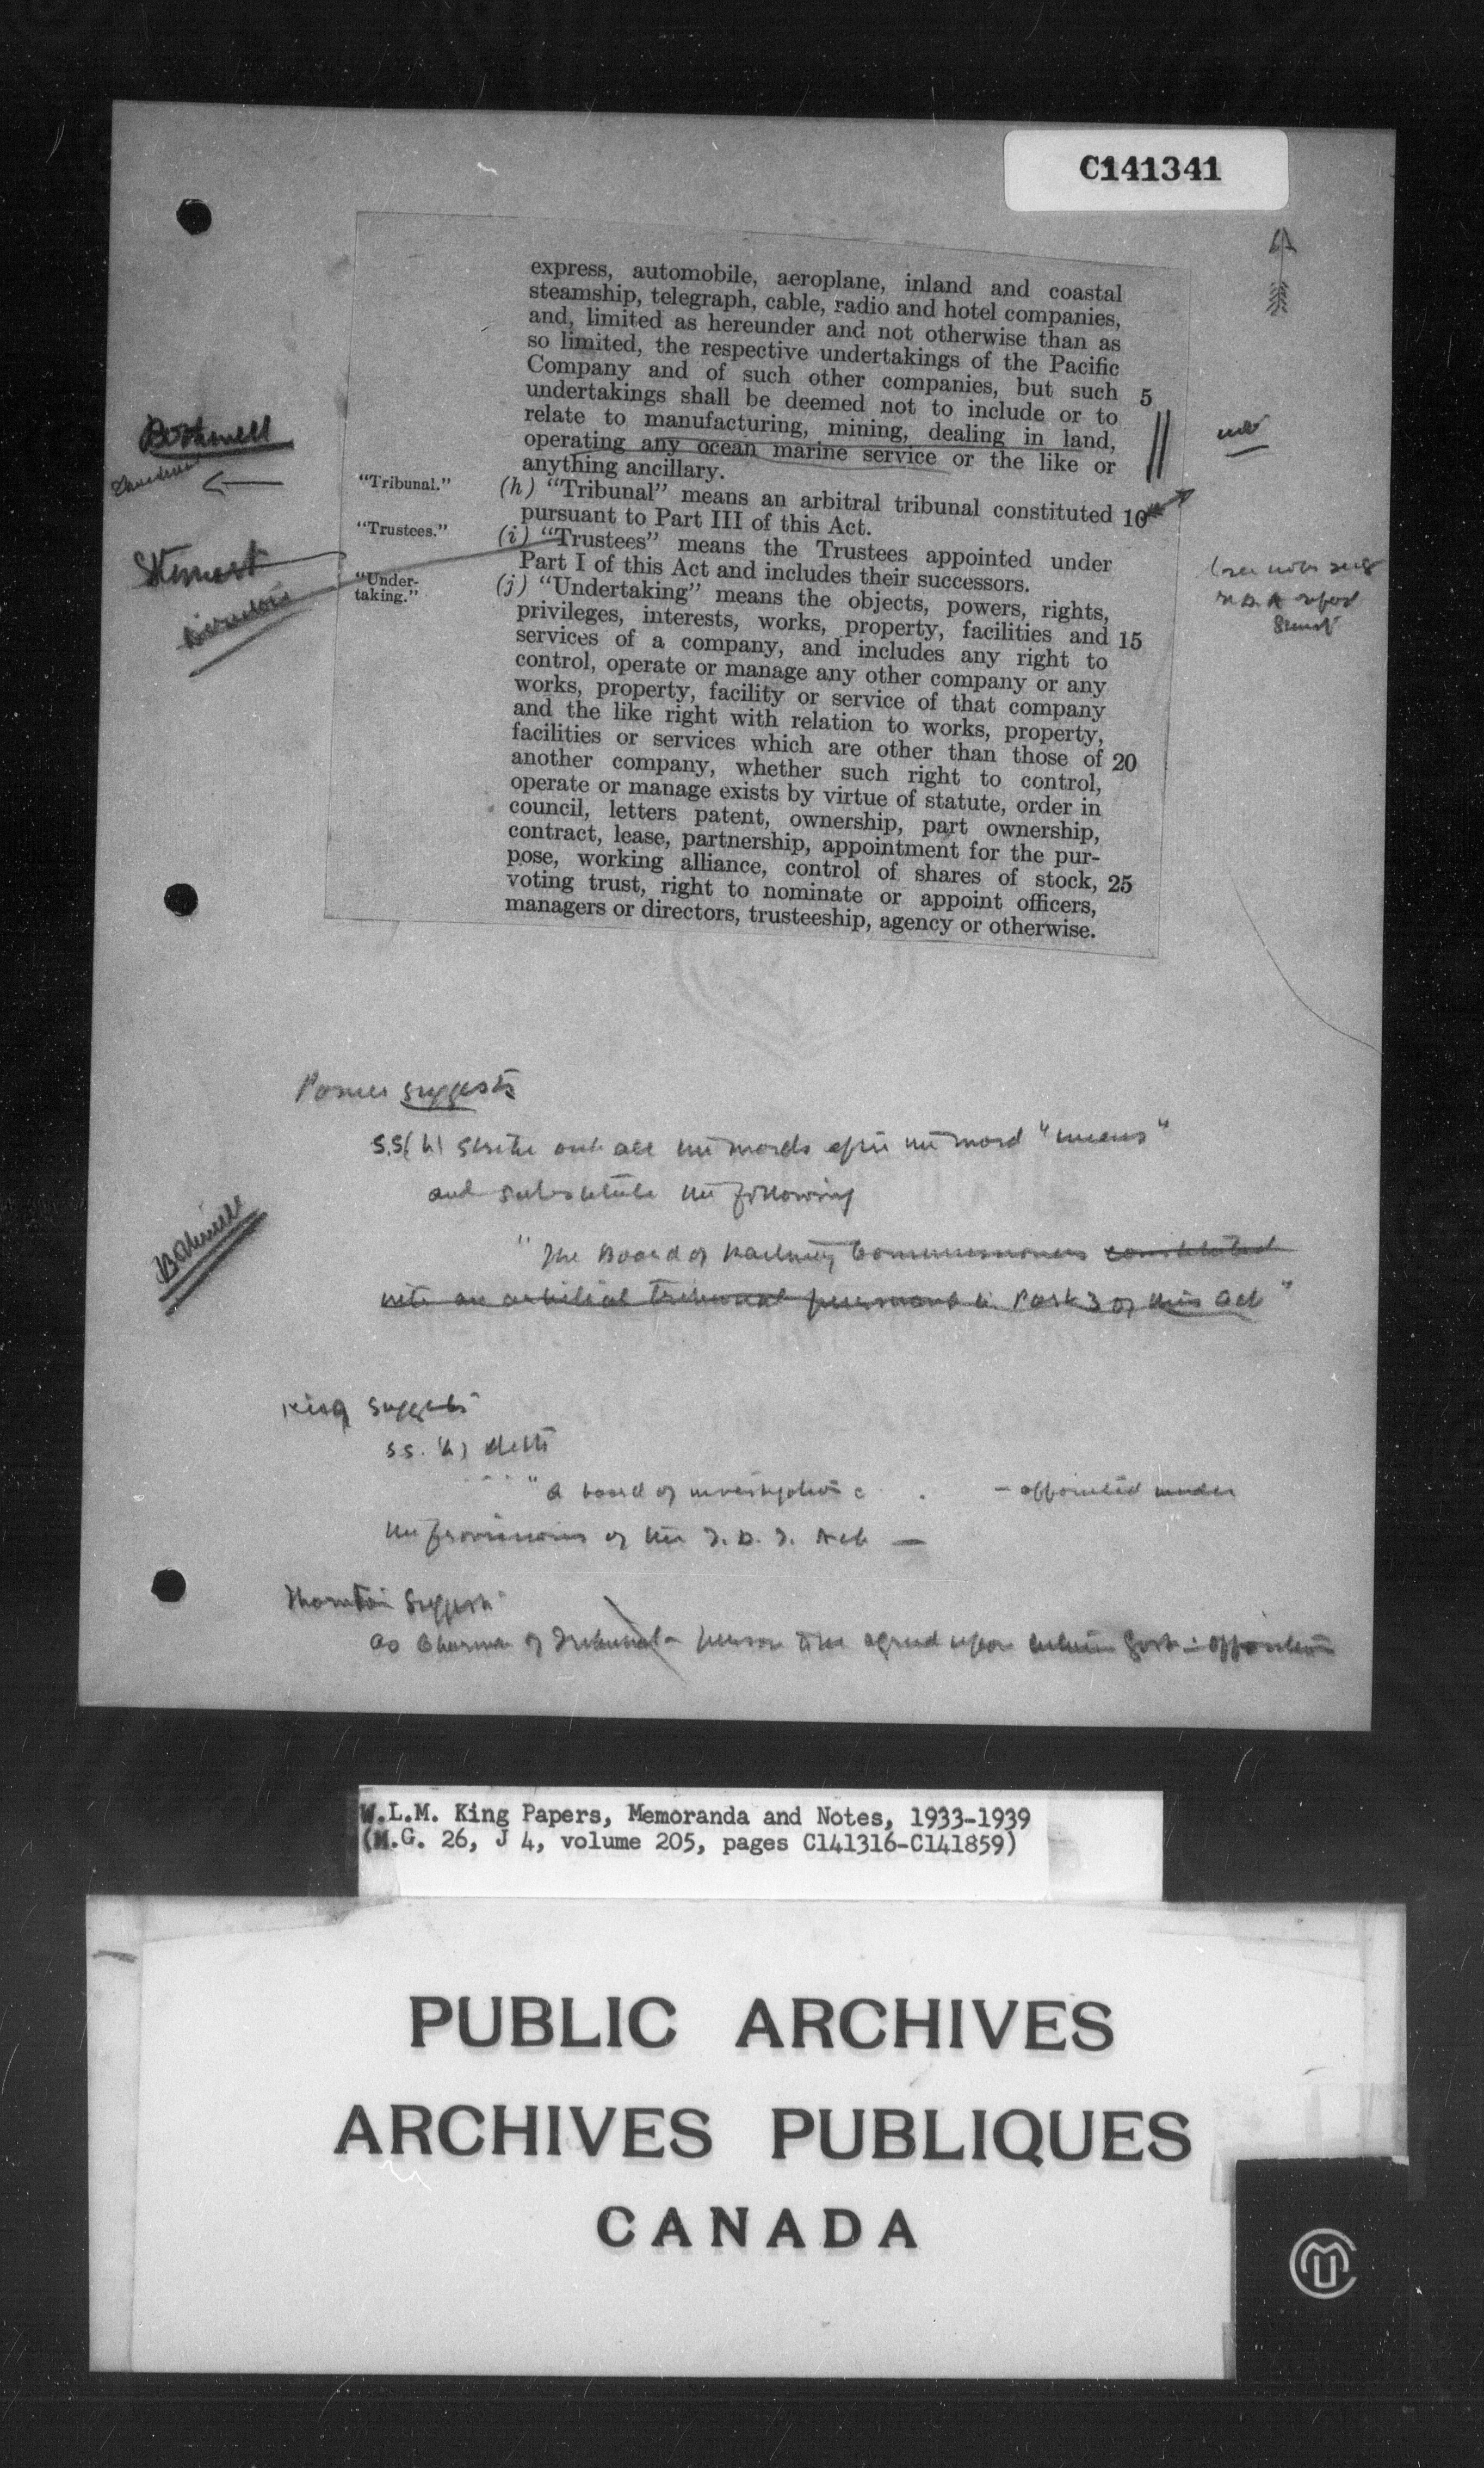 C141341
express, automobile, aeroplane, inland and coastal
steamship, telegraph, cable, radio and hotel companies,
and, limited as hereunder and not otherwise than as
so limited, the respective undertakings of the Pacific
Company and of such other companies, but such 5
undertakings shall be deemed not to include or to
relate to manufacturing, mining, dealing in land,
operating any ocean marine service or the like or
anything ancillary.
Bothwell
"Tribunal."
(h) "Tribunal" means an arbitral tribunal constituted 10
pursuant to Part III of this Act.
"Trustees."
(i) "Trustees" means the Trustees appointed under
Part I of this Act and includes their successors.
Stewart
Directors
"Under-
taking."
(j) "Undertaking" means the objects, powers, rights,
privileges, interests, works, property, facilities and 15
services of a company, and includes any right to
control, operate or manage any other company or any
works, property, facility or service of that company
and the like right with relation to works, property,
facilities or services which are other than those of 20
another company, whether such right to control,
operate or manage exists by virtue of statute, order in
council, letters patent, ownership, part ownership,
contract, lease, partnership, appointment for the pur-
pose, working alliance, control of shares of stock, 25
voting trust, right to nominate or appoint officers,
managers or directors, trusteeship, agency or otherwise.
suggests
S.S.(h) strike out all the words after the word "means"
and substitute the following
Bothwell
"The Board of Railway Commissioners constituted
into an arbitral tribunal pursuant to Part 3 of this Act"
King suggests
s.s. (h)
"a board of investigation - appointed under
the provisions of the I. D. I. Act —
Thornton suggests
as Chairman of Tribunal a person to be agreed upon between Govt - opposition
W.L.M. King Papers, Memoranda and Notes, 1933-1939
(M.G. 26, J 4, volume 205, pages C141316-C141859)
PUBLIC ARCHIVES
ARCHIVES PUBLIQUES
CANADA